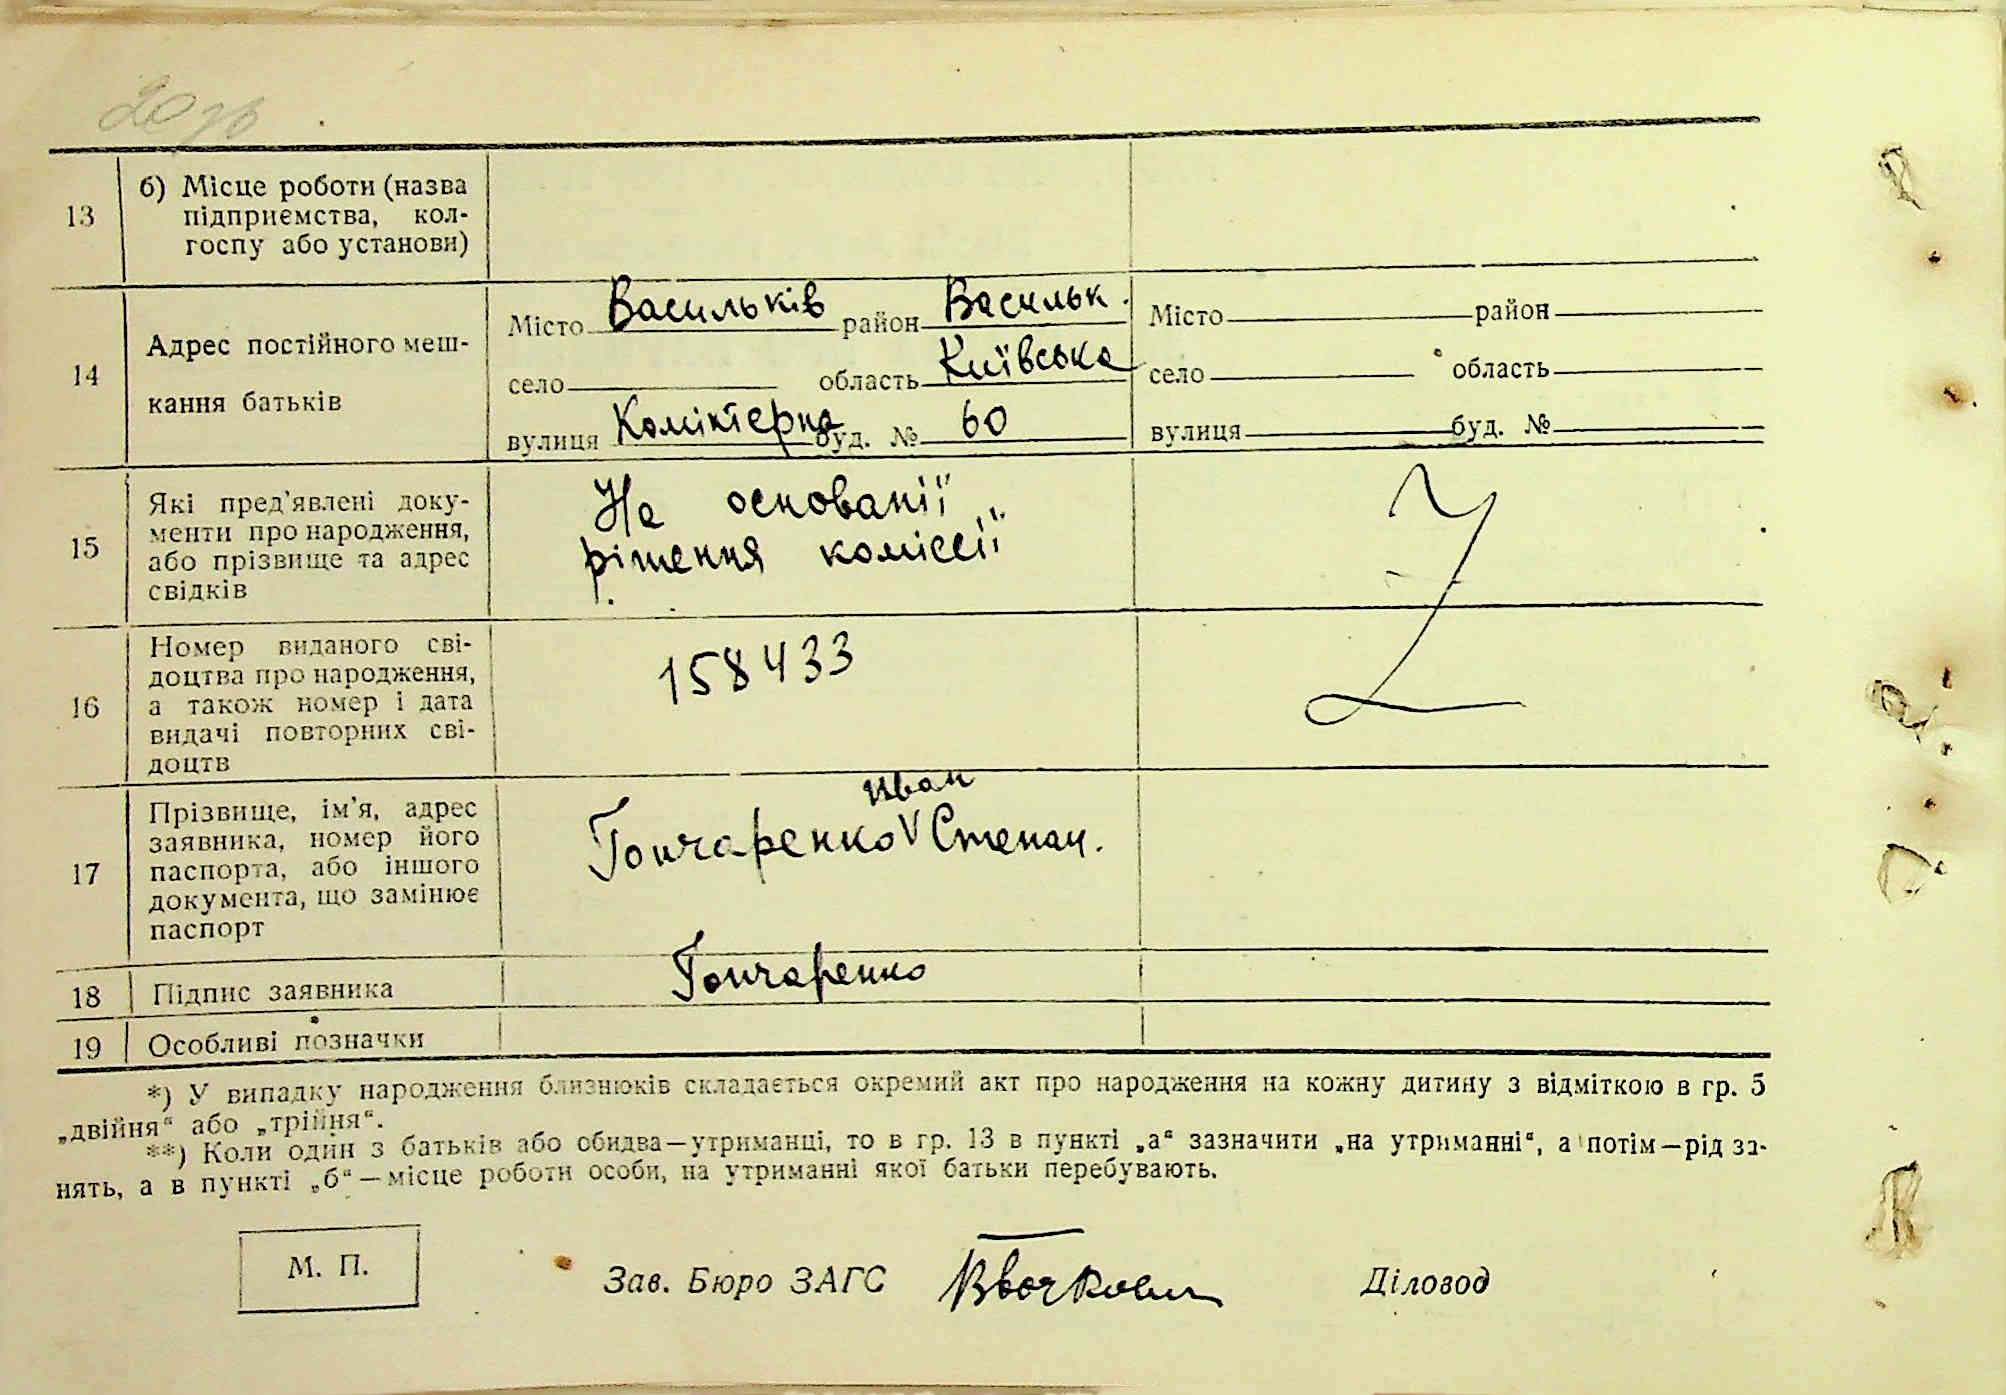 20 зв
13
б) Місце роботи (назва
підприємства, кол-
госпу або установи)
14
Адрес постійного меш-
кання батьків
Місто Васильків район Васильк.
село область Київська
вулиця Комінтерна буд. № 60
Місто район
село область
вулиця буд. №
15
Які пред'явлені доку-
менти про народження,
або прізвище та адрес
свідків
На основанії
рішення коміссії
16
Номер виданого сві-
доцтва про народження,
а також номер і дата
видачі повторних сві-
доцтв
158433
17
Прізвище, ім'я, адрес
заявника, номер його
паспорта, або іншого
документа, що замінює
паспорт
Иван
Гончаренко V Степан.
18
Підпис заявника
Гончаренко
19
Особливі позначки
*) У випадку народження близнюків складається окремий акт про народження на кожну дитину з відміткою в гр. 5
„двійня“ або „трійня“.
**) Коли один з батьків або обидва—утриманці, то в гр. 13 в пункті „а“ зазначити „на утриманні“, а потім—рід за-
нять, а в пункті „б“—місце роботи особи, на утриманні якої батьки перебувають.
М. П.
Зав. Бюро ЗАГС
Діловод